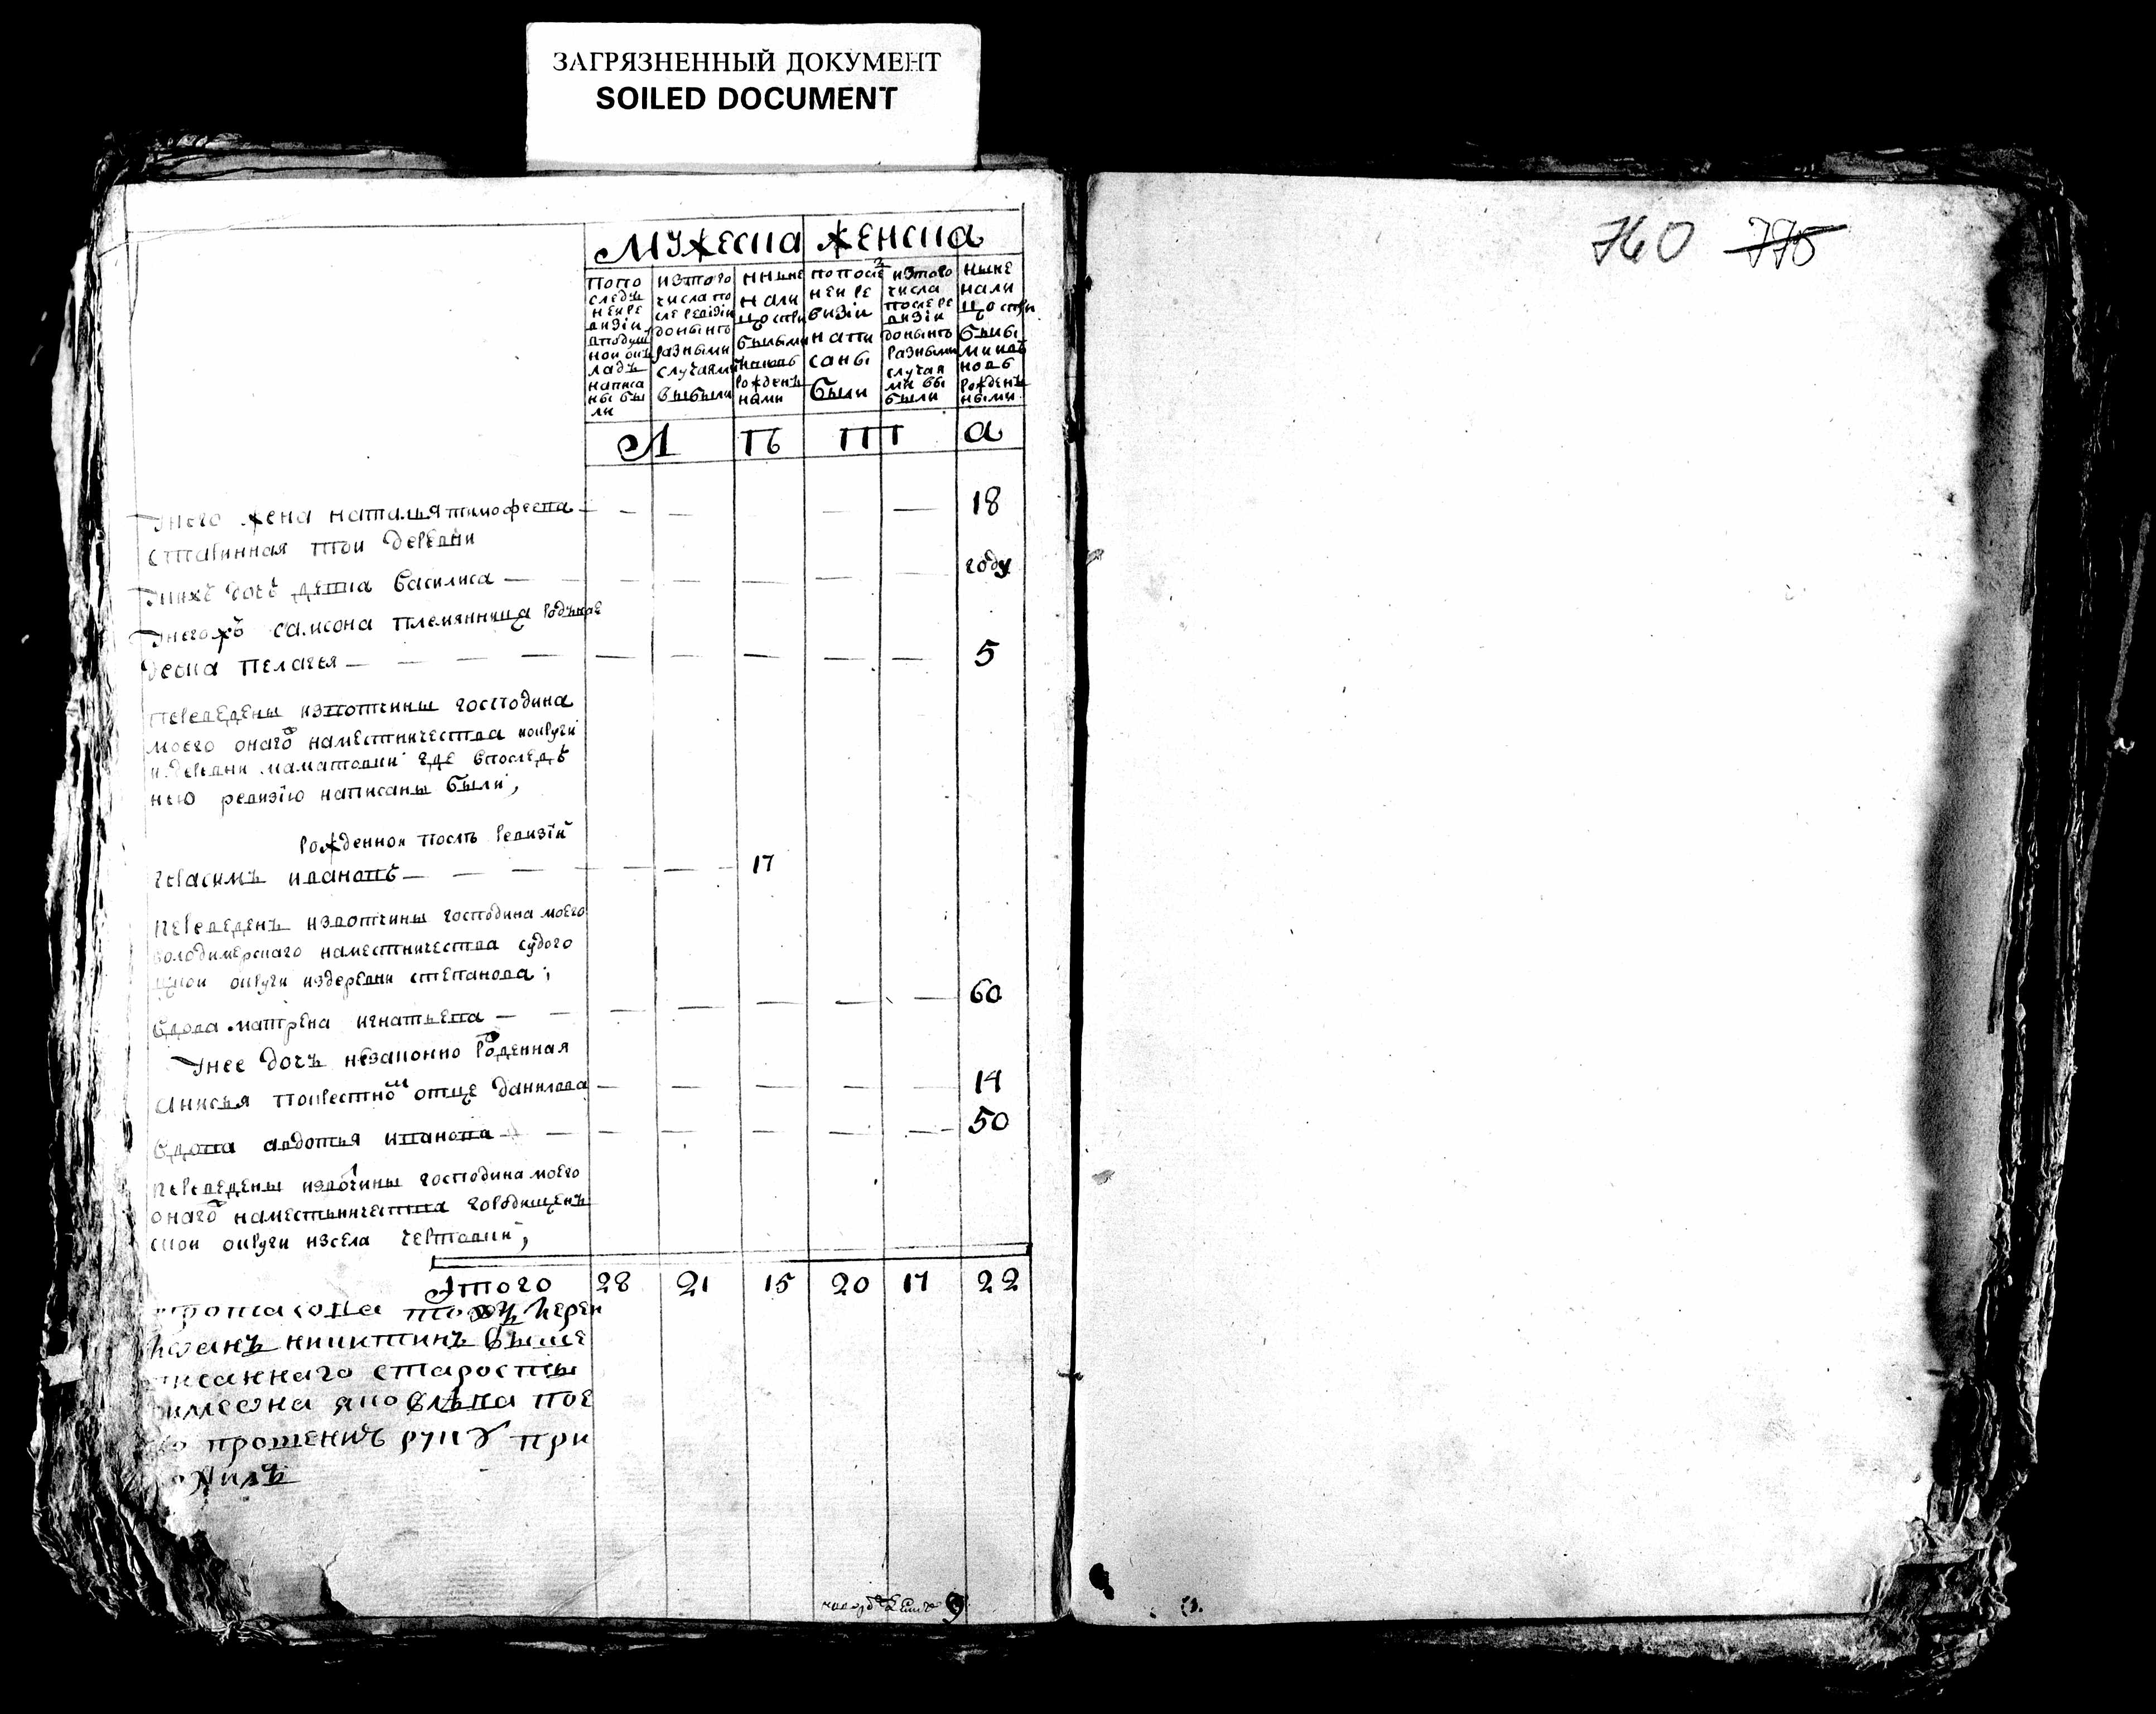 ЗАГРЯЗНЕННЫЙ ДОКУМЕНТ
SOILED DOCUMENT
760 775
мужеска женска
попо следъ ней ре визіи вподуш ной окъ ладъ написа ны бы ли
изтого числа по сле ревизіи доныне разными случаями выбыли
нныне нали цо стои былыми вновь рожденъ ными
по после ней ре визіи напи саны были
изтого числа после ре визіи доныне разными случая ми вы были
ныне нали цо стои былы ми вновь рожденъ ными
л ѣ т а
унего жена наталья тимофеева — — — — — 18
старинная той деревни
унихъ дочь девка василиса — — — — — году
унегожъ самсона племянница родная
девка пелагея — — — — — 5
переведены извотчины господина
моего онаго наместничества округи
деревни маматовки где впоследъ
нею ревизію написаны были,
рожденной послѣ ревизіи
герасимъ ивановъ — — — 17
переведенъ извотчины господина моего
володимерскаго наместничества судого
цкой округи издеревни степанова;
вдова матрена игнатьева — — — — — 60
унее дочъ незаконно роденная
анисья покрестномъ отце данилова — — — — — 14
вдова авдотья иванова — — — — — 50
переведены извотчины господина моего
онаго наместничества городищенъ
ской округи изсела чертовки;
Этого 28 21 15 20 17 22
никитинъ выше
писаннаго старосты
яковлева пое
прошенію руку при
ложилъ
9